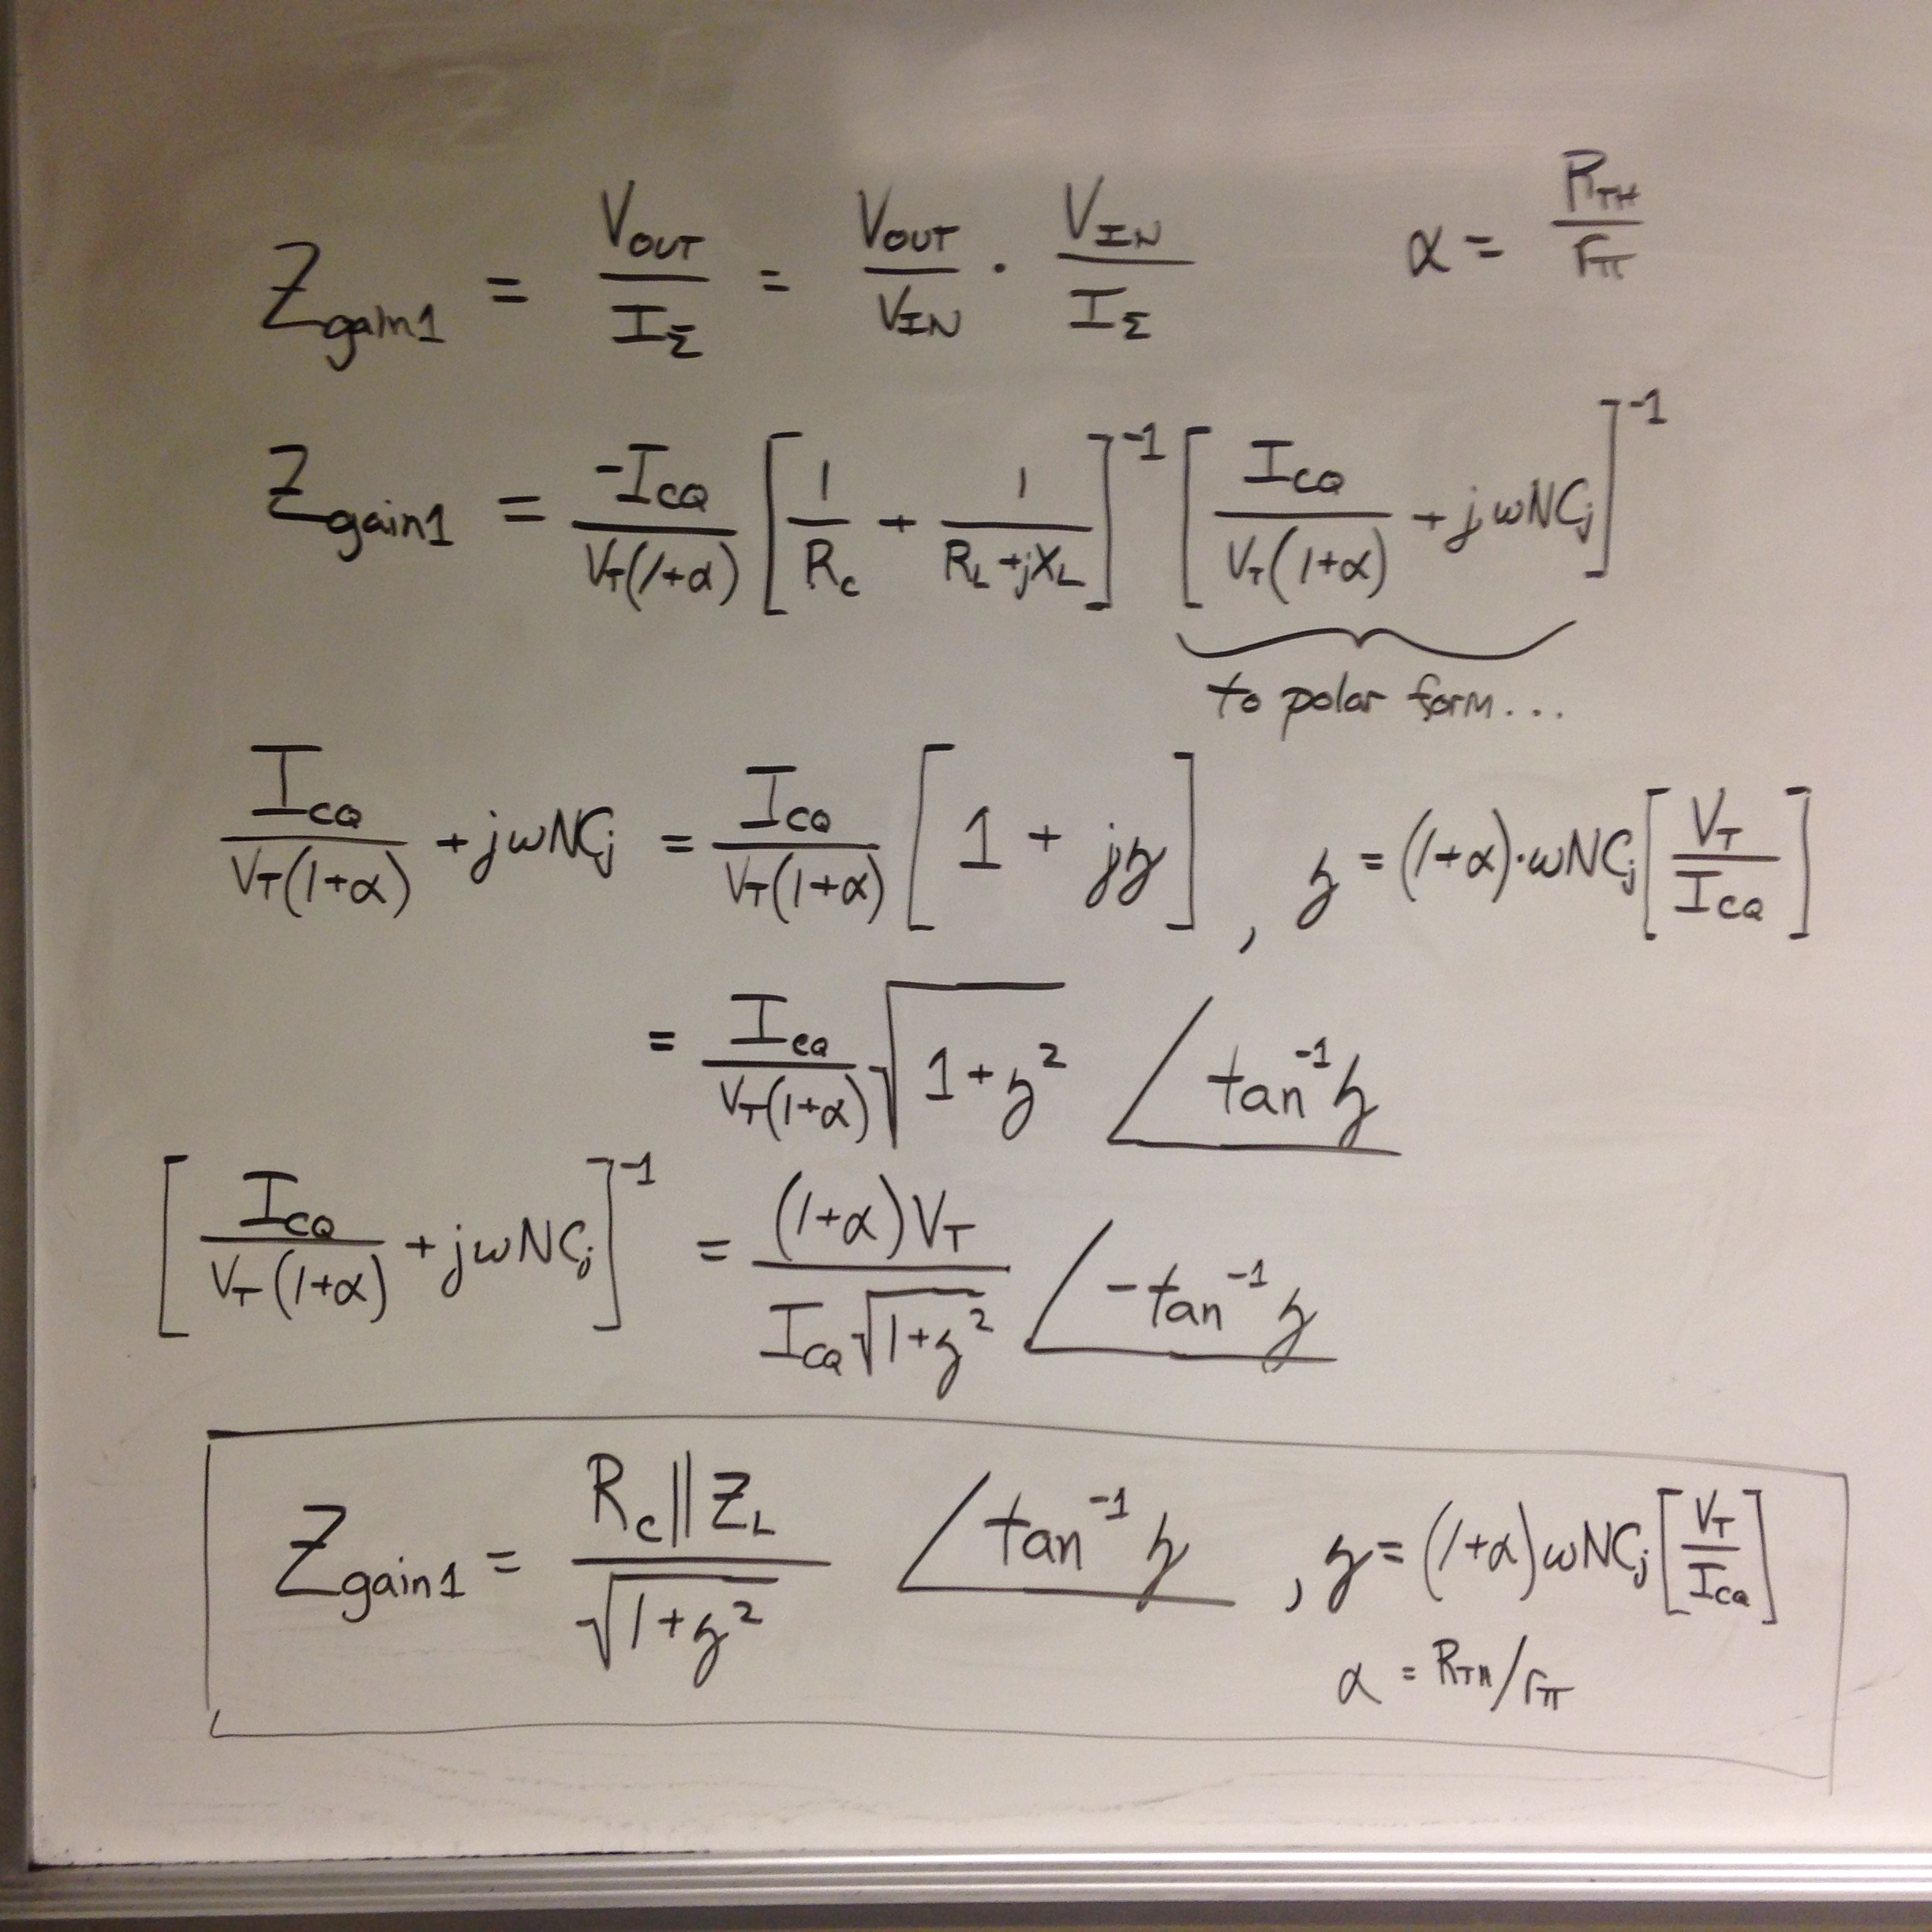 Z_gain1 = V_OUT / I_Σ = V_OUT / V_IN · V_IN / I_Σ    α = R_TH / r_π
Z_gain1 = -I_CQ / V_T(1+α) [1/R_C + 1/(R_L + jX_L)]^-1 [I_CQ / V_T(1+α) + jωNC_j]^-1
to polar form...
I_CQ / V_T(1+α) + jωNC_j = I_CQ / V_T(1+α) [1 + jz], z = (1+α)·ωNC_j [V_T / I_CQ]
= I_CQ / V_T(1+α) √(1+z²) ∠ tan^-1 z
[I_CQ / V_T(1+α) + jωNC_j]^-1 = (1+α)V_T / I_CQ √(1+z²) ∠ -tan^-1 z
Z_gain1 = R_C||Z_L / √(1+z²) ∠ tan^-1 z, z = (1+α)ωNC_j [V_T / I_CQ]
α = R_TH/r_π